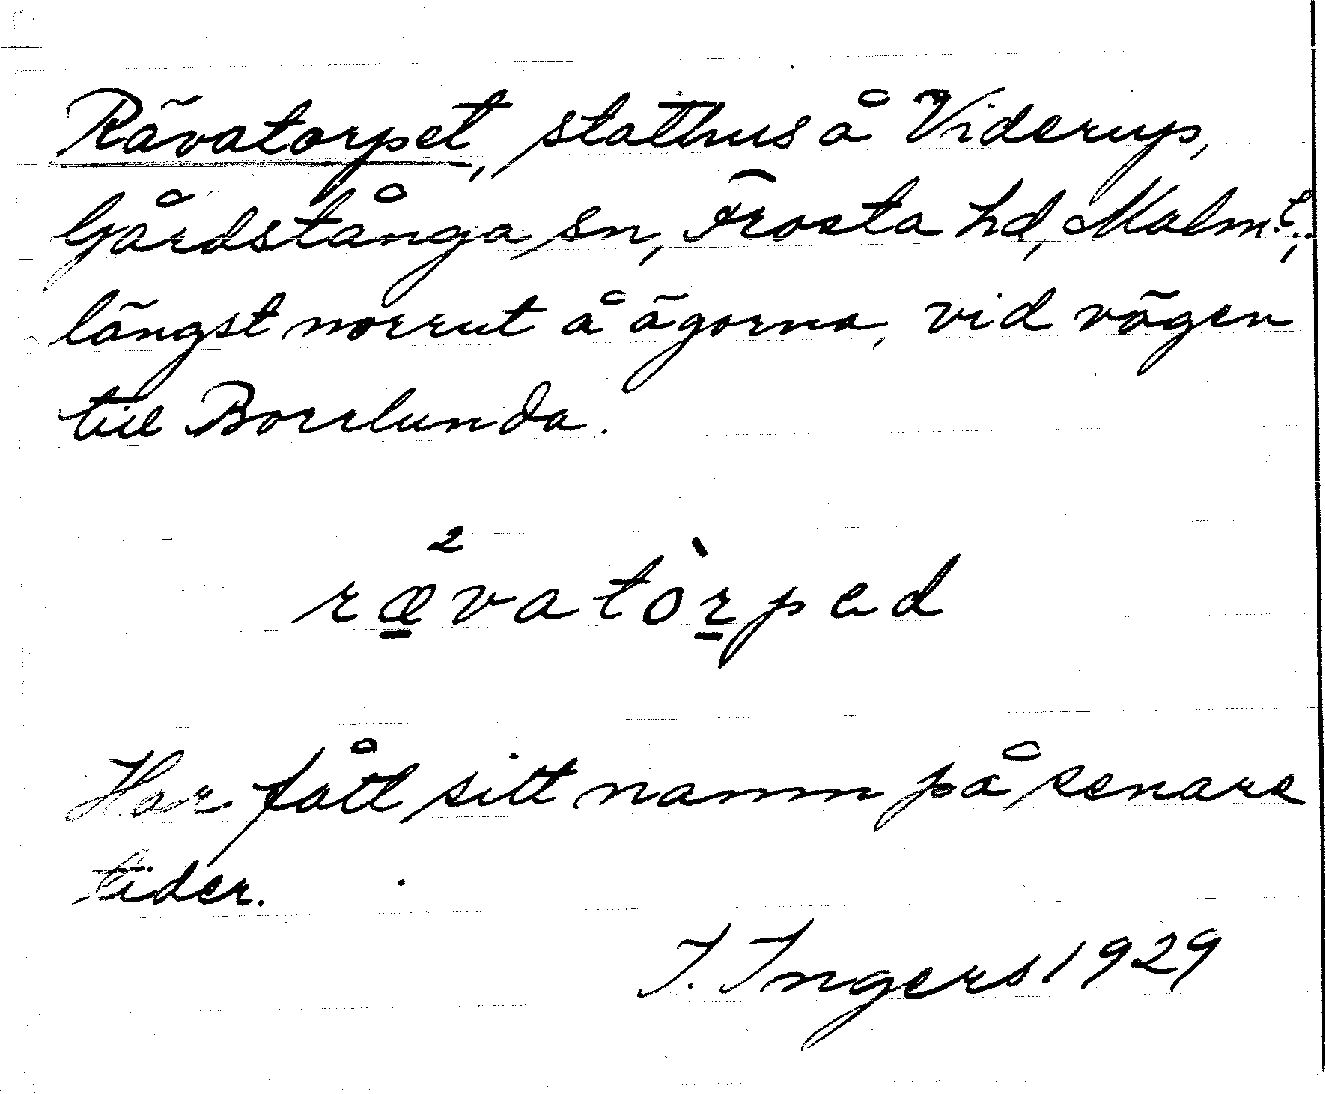 Rävatorpet, stathus å Viderup,
Gårdstånga sn, Frosta hd, Malm. l.,
längst norrut å ägorna, vid vägen
till Borrlunda.
rævatòrped
2
Har fått sitt namn på senare
tider.
I. Ingers 1929